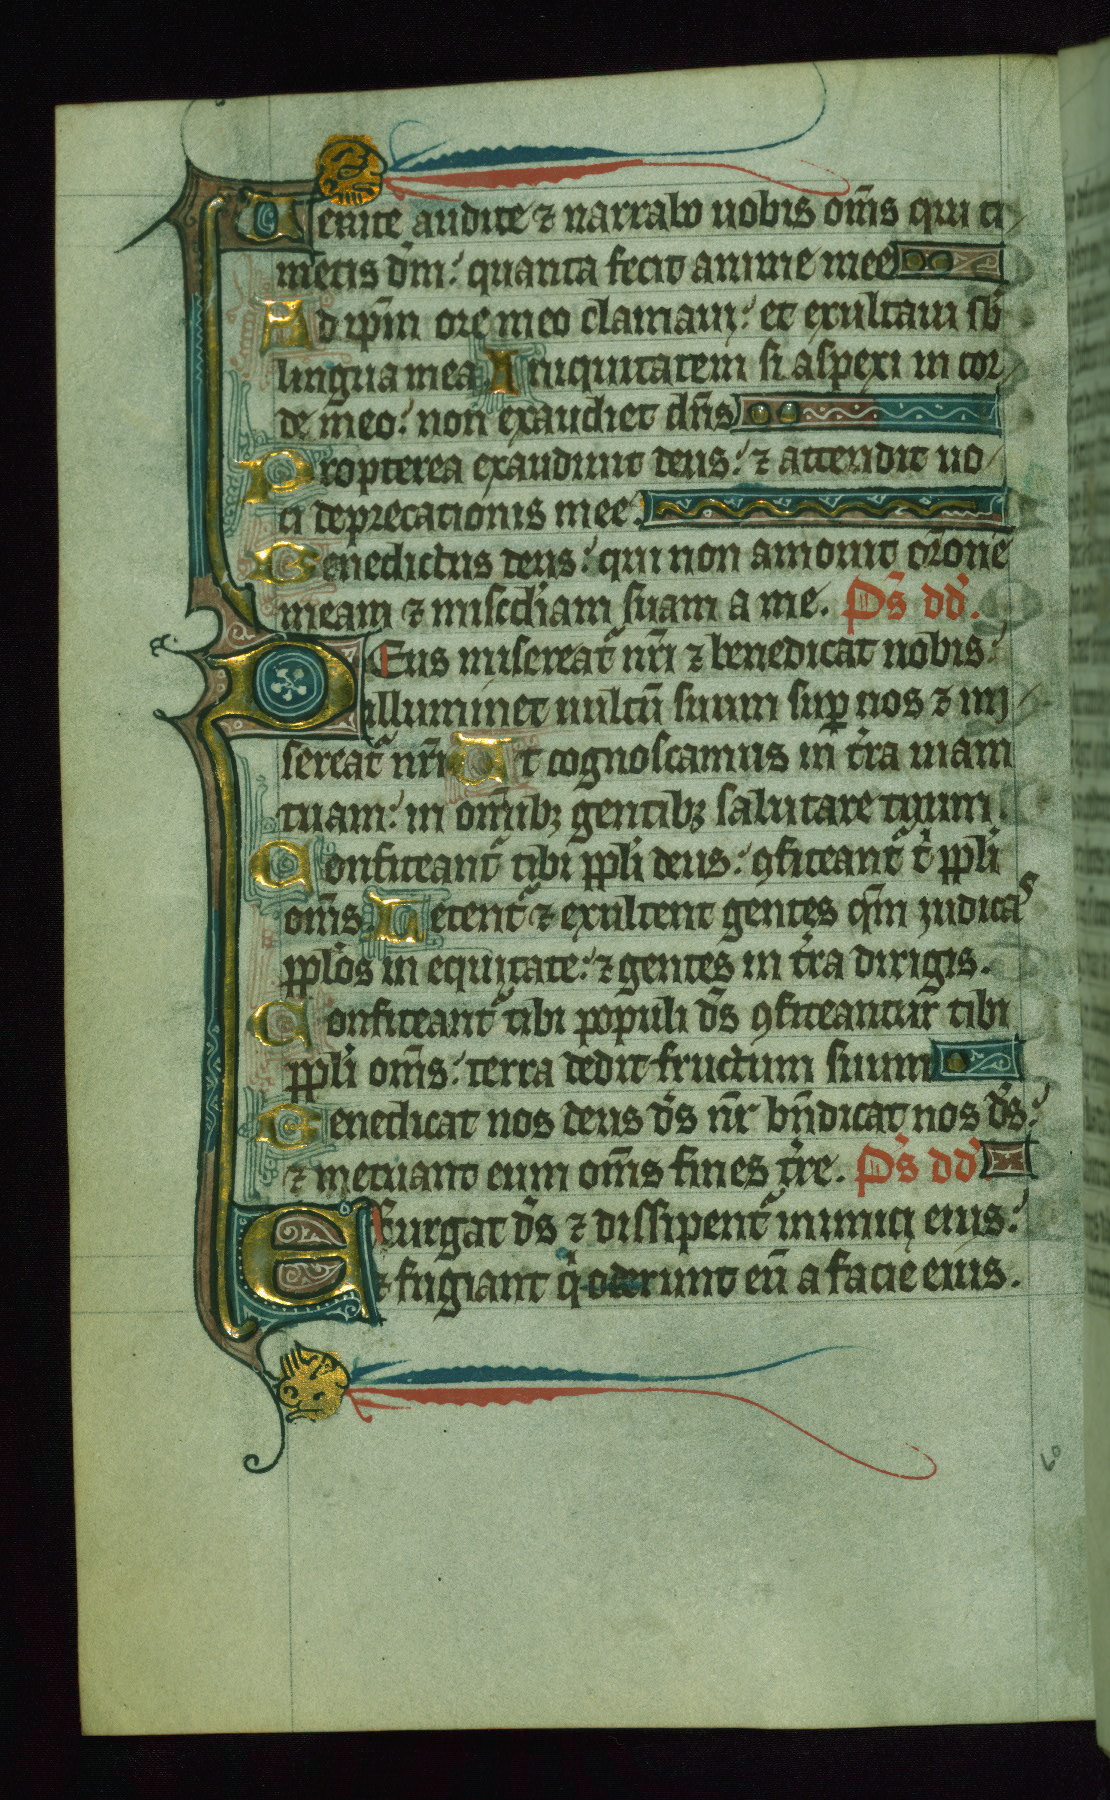 Uenite audite ⁊ narrabo uobis om̄s qui ti
metis dm̄: quanta fecit anime mee
Ad ip̄m ore meo clamaui: et exultaui sb̄
lingua mea Iniquitatem si aspexi in cor
de meo: non exaudiet dn̄s
Propterea exaudiuit deus: ⁊ attendit uo
ci deprecationis mee.
Benedictus deus: qui non amouit or̄one
meam ⁊ misc̄diam suam a me. Ps̄ dd̄.
DEus misereat᷑ nr̄i ⁊ benedicat nobis:
illuminet uultū suum suꝑ nos ⁊ mi
sereat᷑ nr̄i Ut cognoscamus in t̄ra uiam
tuam: in om̄ibꝫ gentibꝫ salutare tuum.
Confiteant᷑ tibi ppl̄i deus: ꝯfiteant᷑ t̄ ppl̄i
om̄s Letent᷑ ⁊ exultent gentes qm̄ iudicas
ppl̄os in equitate: ⁊ gentes in t̄ra dirigis.
Confiteant᷑ tibi populi ds̄ ꝯfiteantur tibi
ppl̄i om̄s: terra dedit fructum suum
Benedicat nos deus ds̄ nr̄ bn̄dicat nos ds̄:
⁊ metuant eum om̄s fines t̄re. Ps̄ dd̄
EXurgat ds̄ ⁊ dissipent᷑ inimici eius:
⁊ fugiant q̄ oderunt eū a facie eius.
60